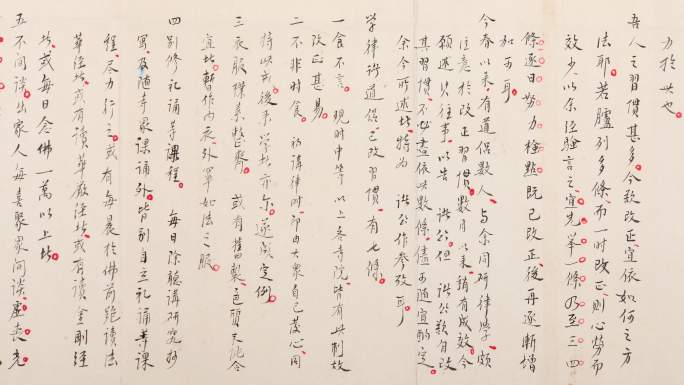 力於此也。
吾人之習慣甚多。今欲改正。宜依如何之方
法耶。若臚列多條。而一時改正。則心勞而
效少。以余經驗言之。宜先舉一條乃至三四
條。逐日努力檢點。既已改正。後再逐漸增
加可耳。
今春以來。有道侶數人。與余同研律學。頗
注意於改正習慣。數月以來。稍有成效。今
願述其往事。以告諸公。但諸公欲自改
其習慣。不必盡依此數條。儘可隨宜酌定。
余今所述者。特為諸公作參考耳。
學律諸道侶。已改習慣。有七條。
一食不言。現時中等以上各寺院。皆有此制。故
改正甚易。
二不非時食。初講律時。即由大眾自己發心。同
持此戒。後來學者亦尔。遂成定例。
三衣服樸素整齊。或有舊製。色質未能合
宜者。暫作內衣。外罩如法之服。
四別修禮誦等課程。每日除聽講研究抄
寫及隨寺眾課誦外。皆別自立禮誦等課
程。盡力行之。或有每晨於佛前跪讀法
華經者。或有讀華嚴經者。或有讀金剛經
者。或每日念佛一萬以上者。
五不閒談。出家人每喜聚眾閒談。虛喪光